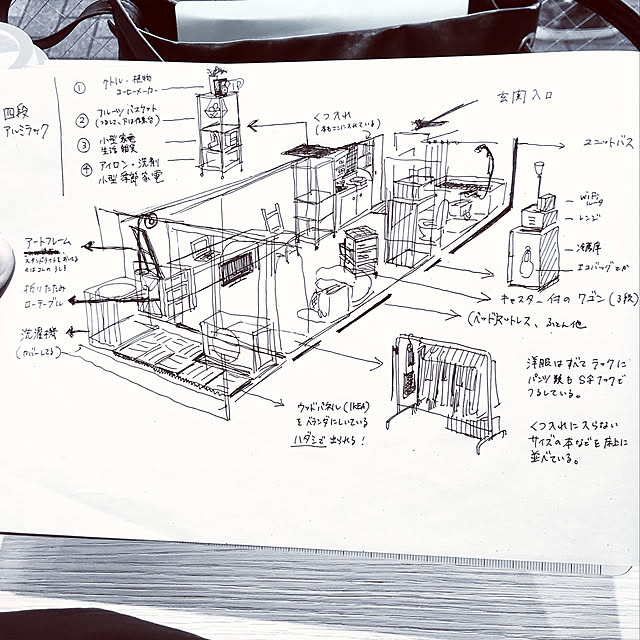 四段
アルミラック
① ケトル・植物
コーヒーメーカー
② フルーツバスケット
③ 小型家電
生活雑貨
④ アイロン・洗剤
小型季節家電
くつ入れ
(本もここに入れている)
玄関入口
ユニットバス
WiFi
ルータ
レンジ
冷蔵庫
エコバッグとか
キャスター付のワゴン(3段)
(ベッドマットレス、ふとん他
アートフレーム
折りたたみ
ローテーブル
洗濯機
(カバーしてる)
ウッドパネル(IKEA)
をベランダにしいている
ハダシで出られる!
洋服はすべてラックに
パンツ類もS字フックで
つるしている。
くつ入れに入らない
サイズの本などを床上に
並べている。